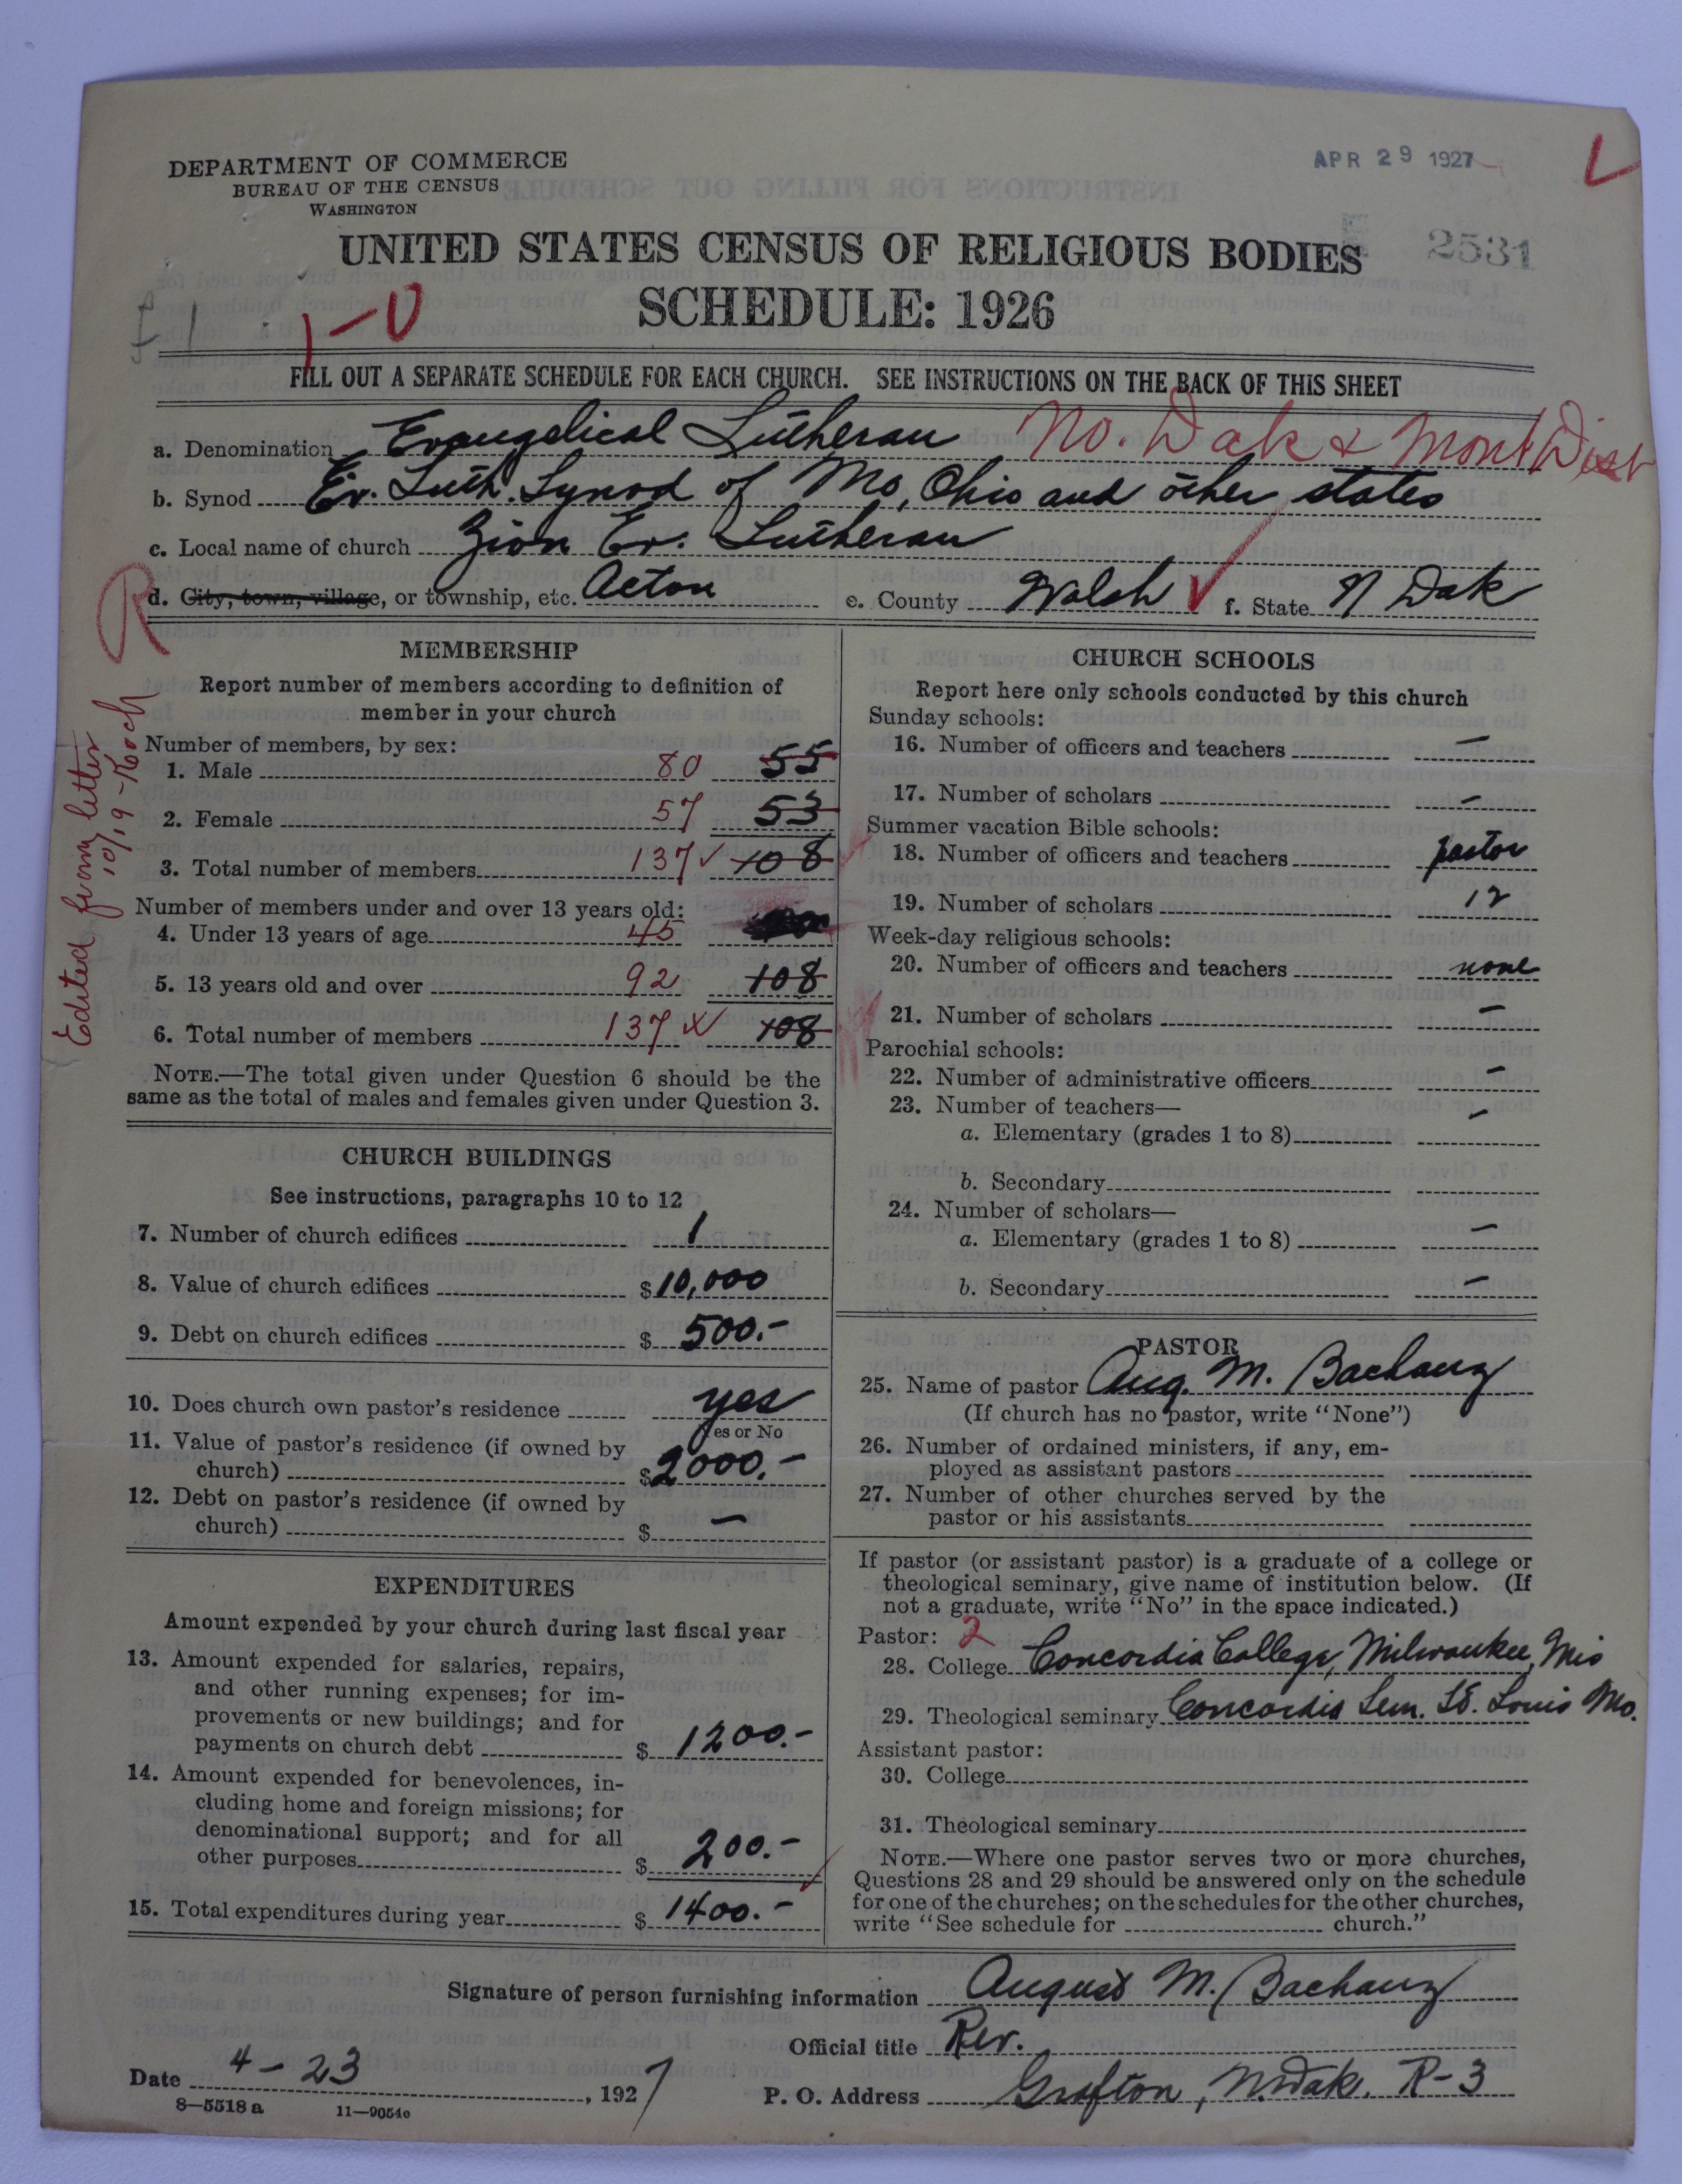 DEPARTMENT OF COMMERCE
BUREAU OF THE CENSUS
WASHINGTON
APR 29 1927
2531
UNITED STATES CENSUS OF RELIGIOUS BODIES
SCHEDULE: 1926
1-0
FILL OUT A SEPARATE SCHEDULE FOR EACH CHURCH. SEE INSTRUCTIONS ON THE BACK OF THIS SHEET
a. Denomination Evangelical Lutheran No. Dak & Mont Dist
b. Synod Ev. Luth. Synod of Mo, Ohio and other states
c. Local name of church Zion Ev. Lutheran
d. City, town, village, or township, etc. Acton e. County Walsh f. State N Dak
R
Edited from letter 10/19 - Koch
MEMBERSHIP
Report number of members according to definition of
member in your church
Number of members, by sex:
1. Male 80 55
2. Female 57 53
3. Total number of members 137 108
Number of members under and over 13 years old:
4. Under 13 years of age 45
5. 13 years old and over 92 108
6. Total number of members 137 108
NOTE.—The total given under Question 6 should be the
same as the total of males and females given under Question 3.
CHURCH BUILDINGS
See instructions, paragraphs 10 to 12
7. Number of church edifices 1
8. Value of church edifices $10,000
9. Debt on church edifices $ 500.-
10. Does church own pastor's residence yes
Yes or No
11. Value of pastor's residence (if owned by
church) $2000.-
12. Debt on pastor's residence (if owned by
church) $ -
EXPENDITURES
Amount expended by your church during last fiscal year
13. Amount expended for salaries, repairs,
and other running expenses; for im-
provements or new buildings; and for
payments on church debt $ 1200.-
14. Amount expended for benevolences, in-
cluding home and foreign missions; for
denominational support; and for all
other purposes $ 200.-
15. Total expenditures during year $ 1400.-
CHURCH SCHOOLS
Report here only schools conducted by this church
Sunday schools:
16. Number of officers and teachers -
17. Number of scholars -
Summer vacation Bible schools:
18. Number of officers and teachers pastor
19. Number of scholars 12
Week-day religious schools:
20. Number of officers and teachers none
21. Number of scholars -
Parochial schools:
22. Number of administrative officers -
23. Number of teachers— -
a. Elementary (grades 1 to 8)
b. Secondary
24. Number of scholars—
a. Elementary (grades 1 to 8) -
b. Secondary -
PASTOR
25. Name of pastor Aug. M. Bachanz
(If church has no pastor, write "None")
26. Number of ordained ministers, if any, em-
ployed as assistant pastors
27. Number of other churches served by the
pastor or his assistants
If pastor (or assistant pastor) is a graduate of a college or
theological seminary, give name of institution below. (If
not a graduate, write "No" in the space indicated.)
Pastor: 2
28. College Concordia College, Milwaukee, Wis
29. Theological seminary Concordia Sem. St. Louis Mo.
Assistant pastor:
30. College
31. Theological seminary
NOTE.—Where one pastor serves two or more churches,
Questions 28 and 29 should be answered only on the schedule
for one of the churches; on the schedules for the other churches,
write "See schedule for church."
Signature of person furnishing information August M. Bachanz
Official title Rev.
Date 4-23, 1927 P. O. Address Grafton, N. Dak. R-3
8—5518 a 11—9054c